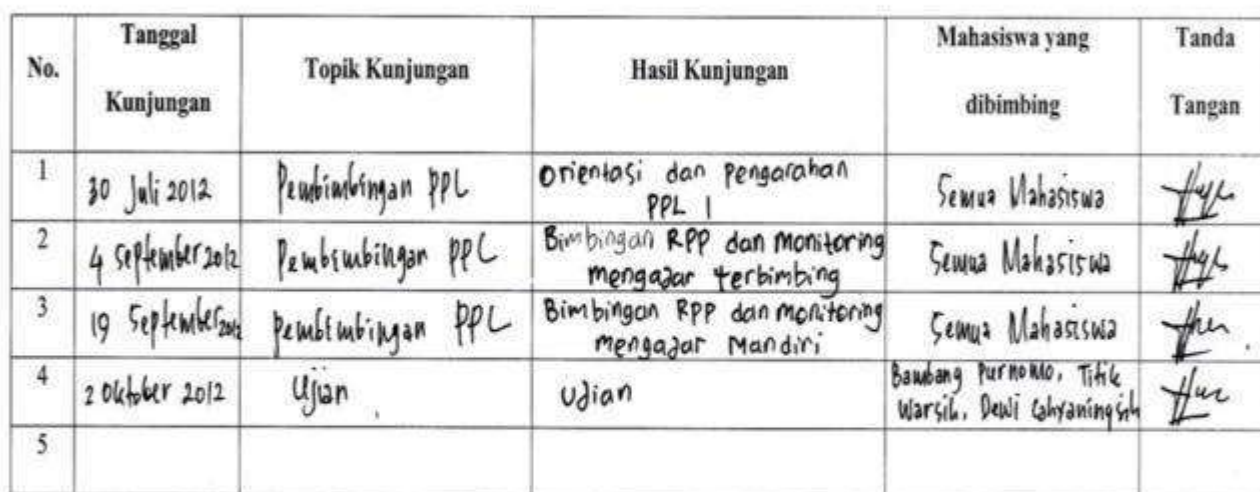 No. Tanggal Kunjungan Topik Kunjungan Hasil Kunjungan Mahasiswa yang dibimbing Tanda Tangan
1 30 Juli 2012 Pembimbingan PPL Orientasi dan pengarahan PPL 1 Semua Mahasiswa
2 4 September 2012 Pembimbingan PPL Bimbingan RPP dan monitoring mengajar terbimbing Semua Mahasiswa
3 19 September 2012 pembimbingan PPL Bimbingan RPP dan monitoring mengajar Mandiri Semua Mahasiswa
4 2 Oktober 2012 Ujian Ujian Bambang Purnomo, Titik Warsih, Dewi Cahyaningsih
5